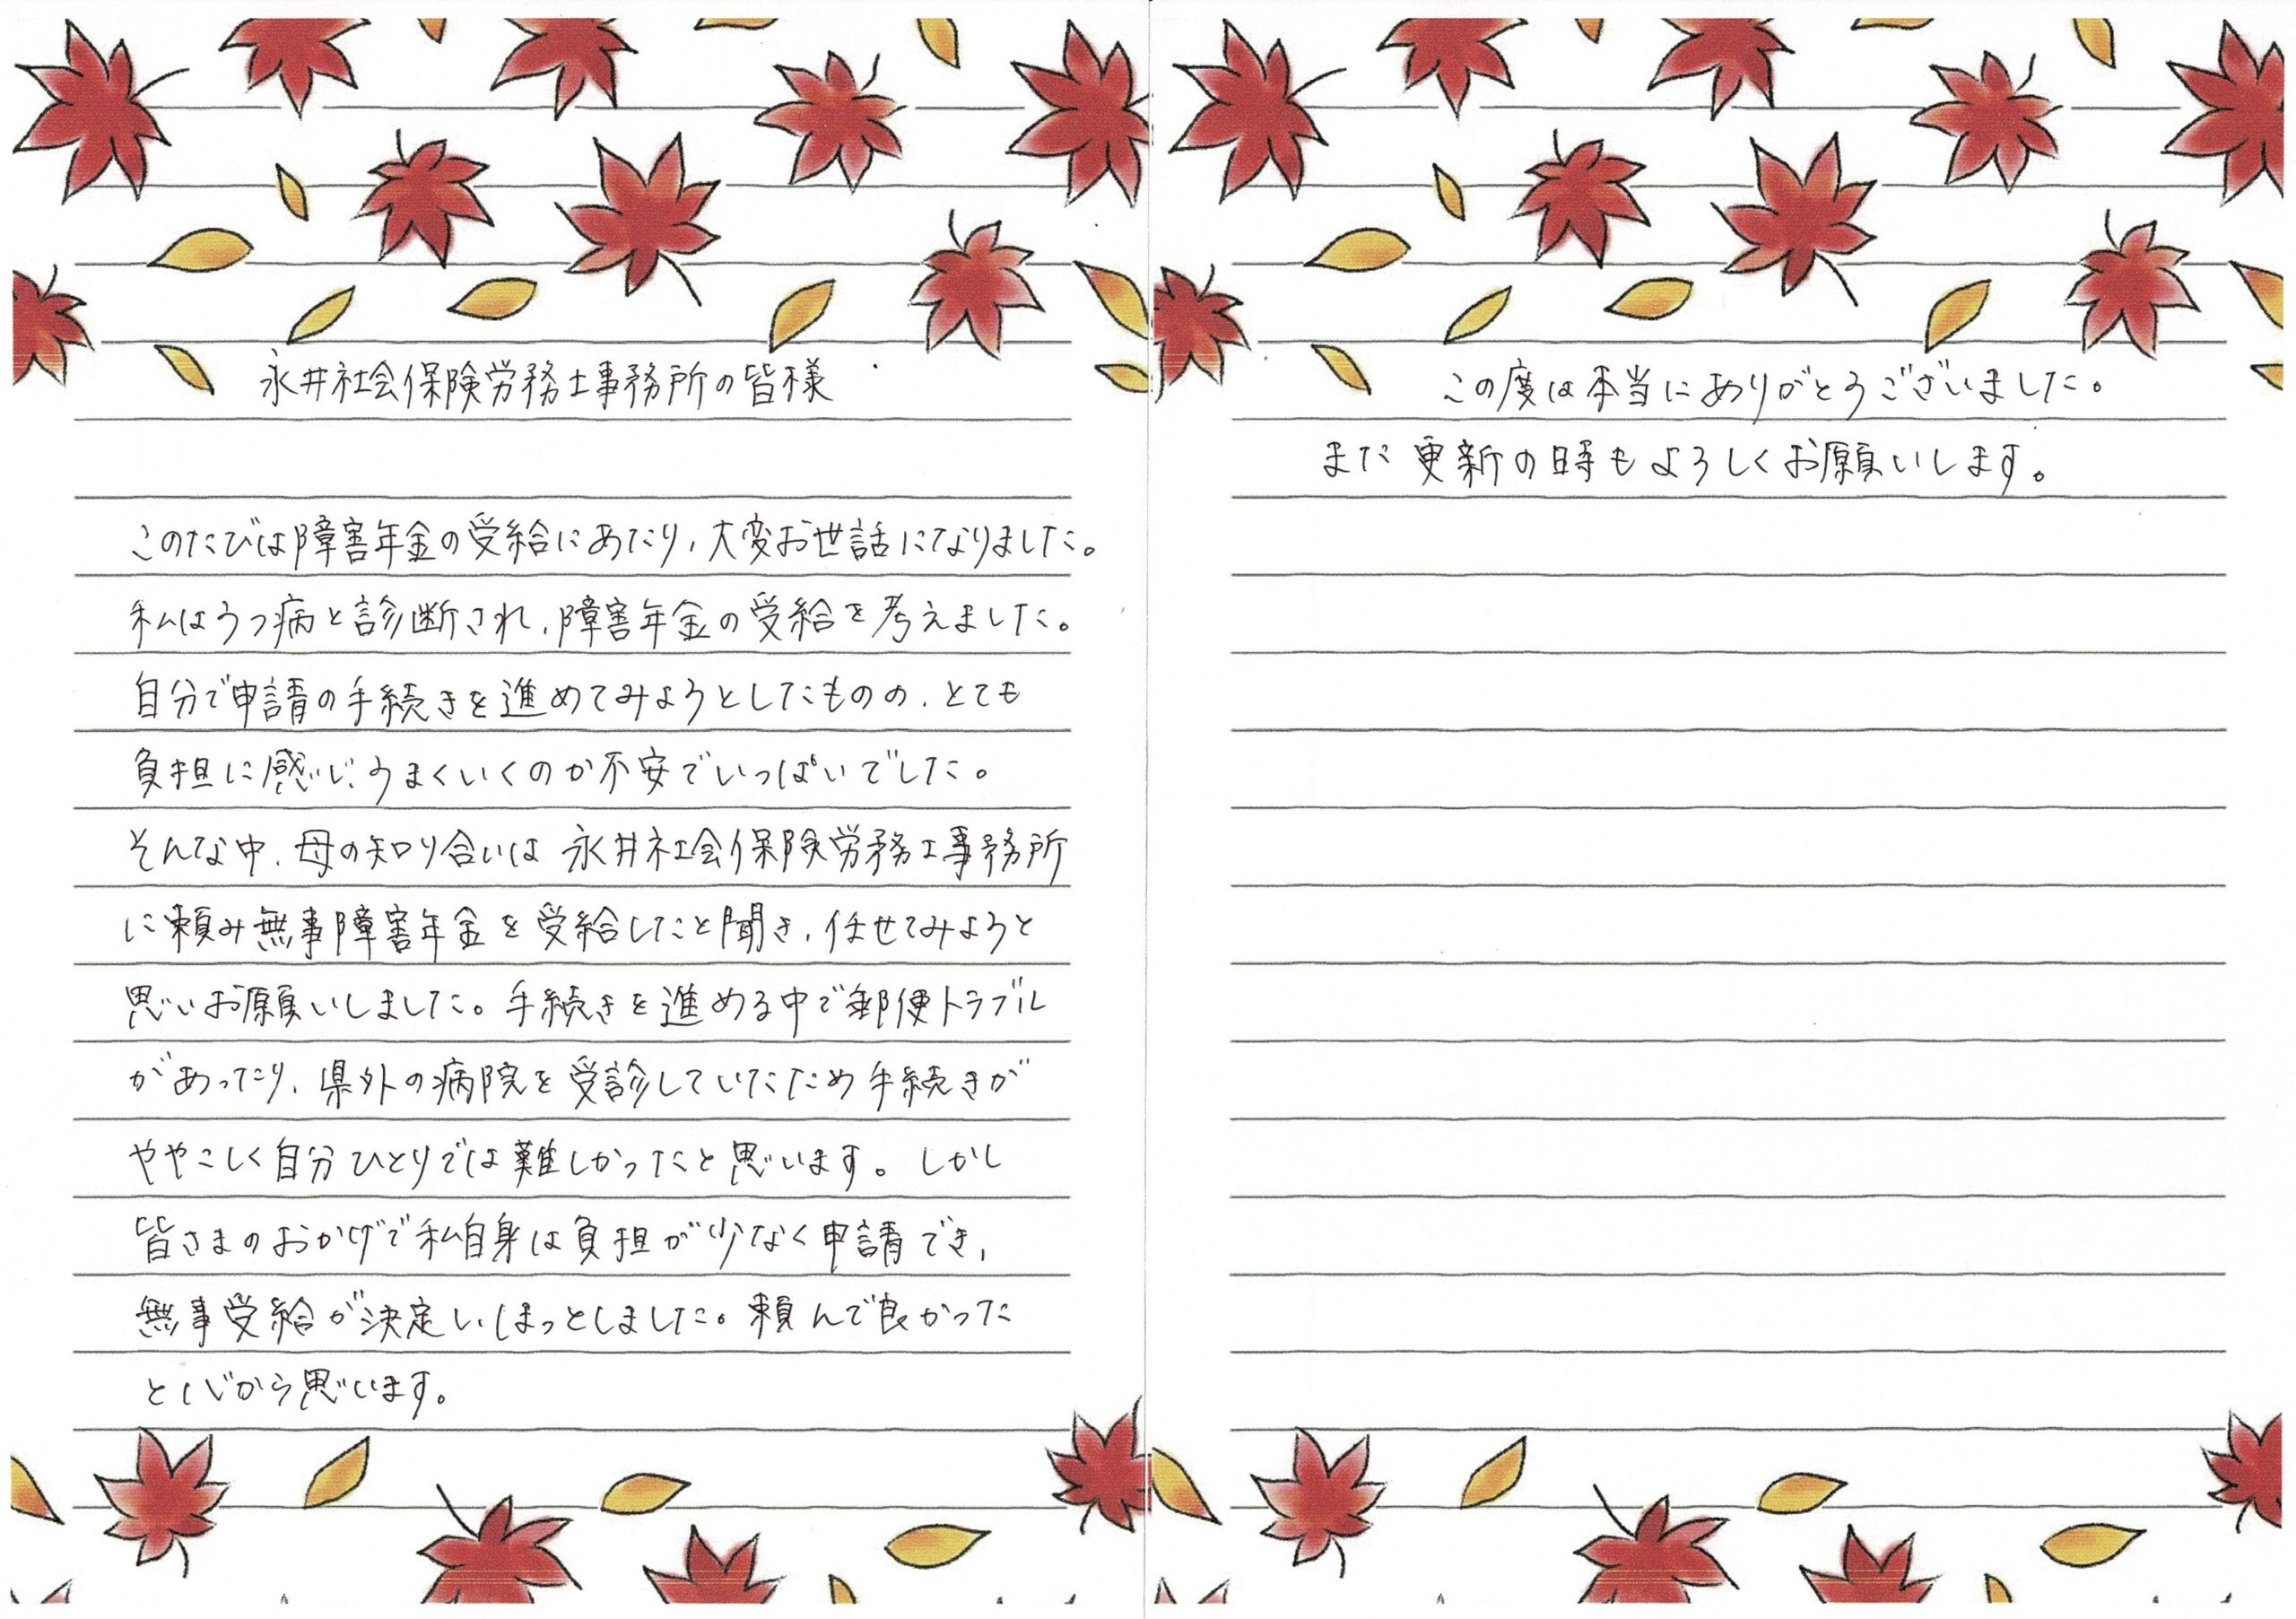 永井社会保険労務士事務所の皆様
このたびは障害年金の受給にあたり、大変お世話になりました。
私はうつ病と診断され、障害年金の受給を考えました。
自分で申請の手続きを進めてみようとしたものの、とても
負担に感じ、うまくいくのか不安でいっぱいでした。
そんな中、母の知り合いは 永井社会保険労務士事務所
に頼み無事障害年金を受給したこと聞き、任せてみようと
思いお願いしました。手続きを進める中で郵便トラブル
があったり、県外の病院を受診していたため手続きが
ややこしく自分ひとりでは難しかったと思います。しかし
皆さまのおかげで私自身は負担が少なく申請でき、
無事受給が決定し、ほっとしました。頼んで良かった
と心から思います。
この度は本当にありがとうございました。
また更新の時もよろしくお願いします。